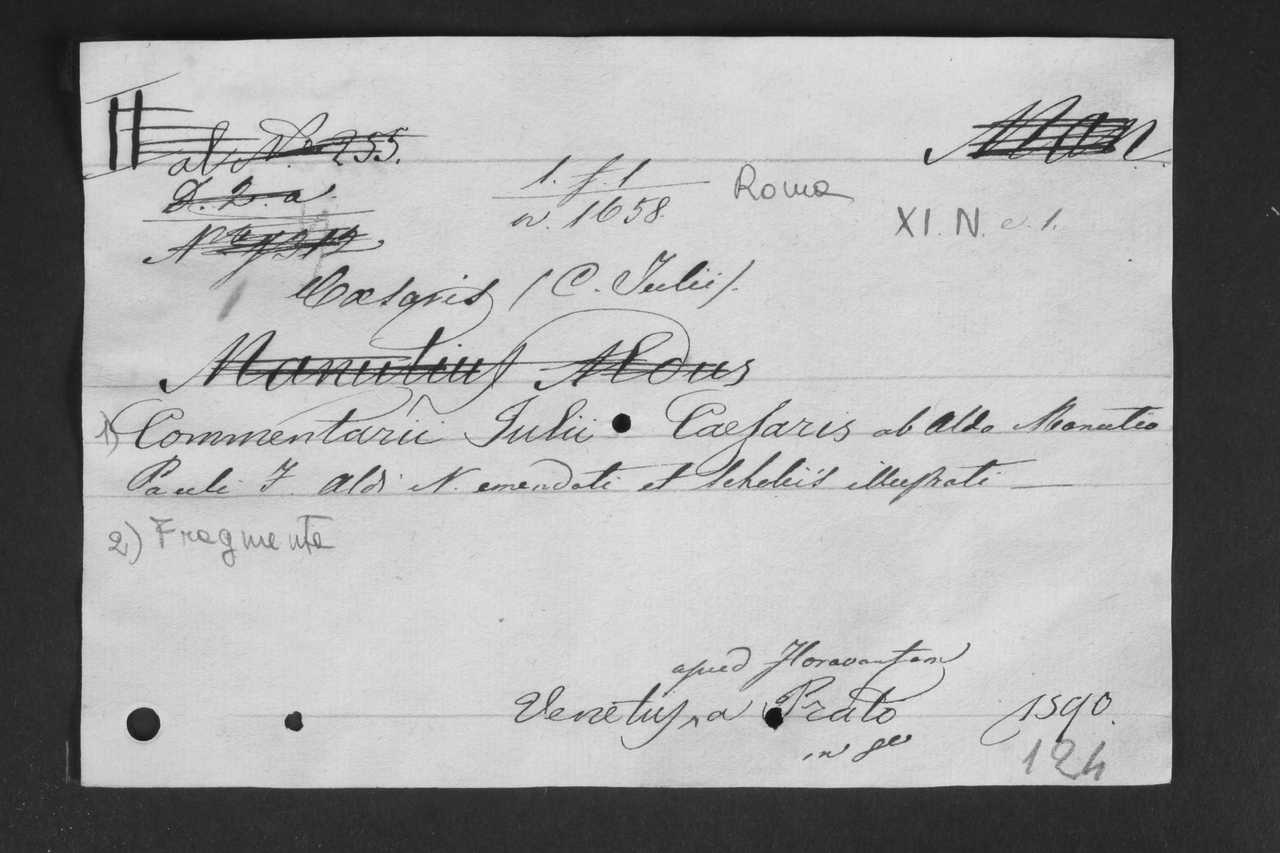 ab N. 255. Man.
D. 2. a
1. f. 1 Roma
n. 1658. XI. N. c. 1.
Cæsaris (C. Julii).
Manutius Aldus
1) Commentarii Julii Caesaris ab Aldo Manutio
Pauli F. Aldi N. emendati et scholiis illustrati —
2) Fragmenta
apud Floravantem
Venetiis, a Prato 1590.
in 8vo
124